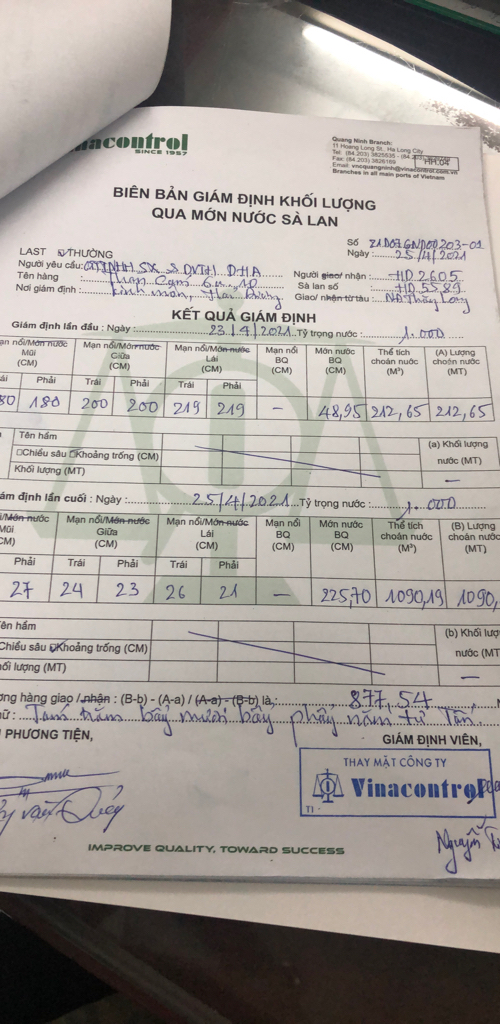 nacontrol
SINCE 1957
Quang Ninh Branch:
11 Hoang Long St., Ha Long City
Tel: (84.203) 3825535 - (84.203)
Fax: (84.203) 3826169
HH:04
Email: vncquangninh@vinacontrol.com.vn
Branches in all main ports of Vietnam
BIÊN BẢN GIÁM ĐỊNH KHỐI LƯỢNG
QUA MỚN NƯỚC SÀ LAN
Số 21D03GND00203-01
LAST THƯỜNG Ngày: 25/4/2021
Người yêu cầu: CTTNHH SX & DVTH DHA Người giao/ nhận: HD 2605
Tên hàng : Than Cám 6a.10 Sà lan số : HD 5589
Nơi giám định : Kinh môn, Hải Dương Giao/ nhận từ tàu: NĐ Thăng Long
KẾT QUẢ GIÁM ĐỊNH
Giám định lần đầu : Ngày : 23/4/2021 Tỷ trọng nước : 1.000
ạn nổi/Mớn nước Mũi (CM) Mạn nổi/Mớn nước Giữa (CM) Mạn nổi/Mớn nước Lái (CM) Mạn nổi BQ (CM) Mớn nước BQ (CM) Thể tích choán nước (M³) (A) Lượng choán nước (MT)
ái Phải Trái Phải Trái Phải
80 180 200 200 219 219 – 48,95 212,65 212,65
Tên hầm (a) Khối lượng nước (MT)
Chiều sâu Khoảng trống (CM)
Khối lượng (MT) –
ám định lần cuối : Ngày : 25/4/2021 Tỷ trọng nước : 1.000
i/Mớn nước Mũi CM) Mạn nổi/Mớn nước Giữa (CM) Mạn nổi/Mớn nước Lái (CM) Mạn nổi BQ (CM) Mớn nước BQ (CM) Thể tích choán nước (M³) (B) Lượng choán nước (MT)
Phải Trái Phải Trái Phải
27 24 23 26 21 – 225,70 1090,19 1090,
ên hầm (b) Khối lượ nước (MT
Chiều sâu Khoảng trống (CM)
hối lượng (MT) –
ợng hàng giao / nhận : (B-b) - (A-a) / (A-a) - (B-b) là: 877,54
hữ : Tám trăm bẩy mươi bẩy phẩy năm tư Tấn.
PHƯƠNG TIỆN, GIÁM ĐỊNH VIÊN,
THAY MẶT CÔNG TY
Vinacontrol
Nguyễn
IMPROVE QUALITY, TOWARD SUCCESS